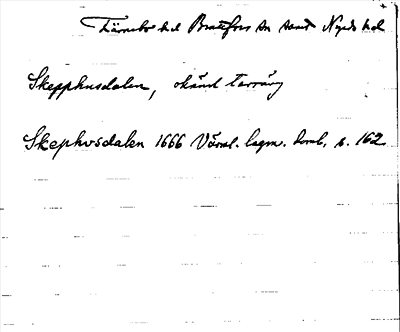 Färnebo hd Bratsfors sn samt Nyeds hd
Skepphusdalen, okänd terräng
Skephvsdalen 1666 Värml. lagm. domb. s. 162